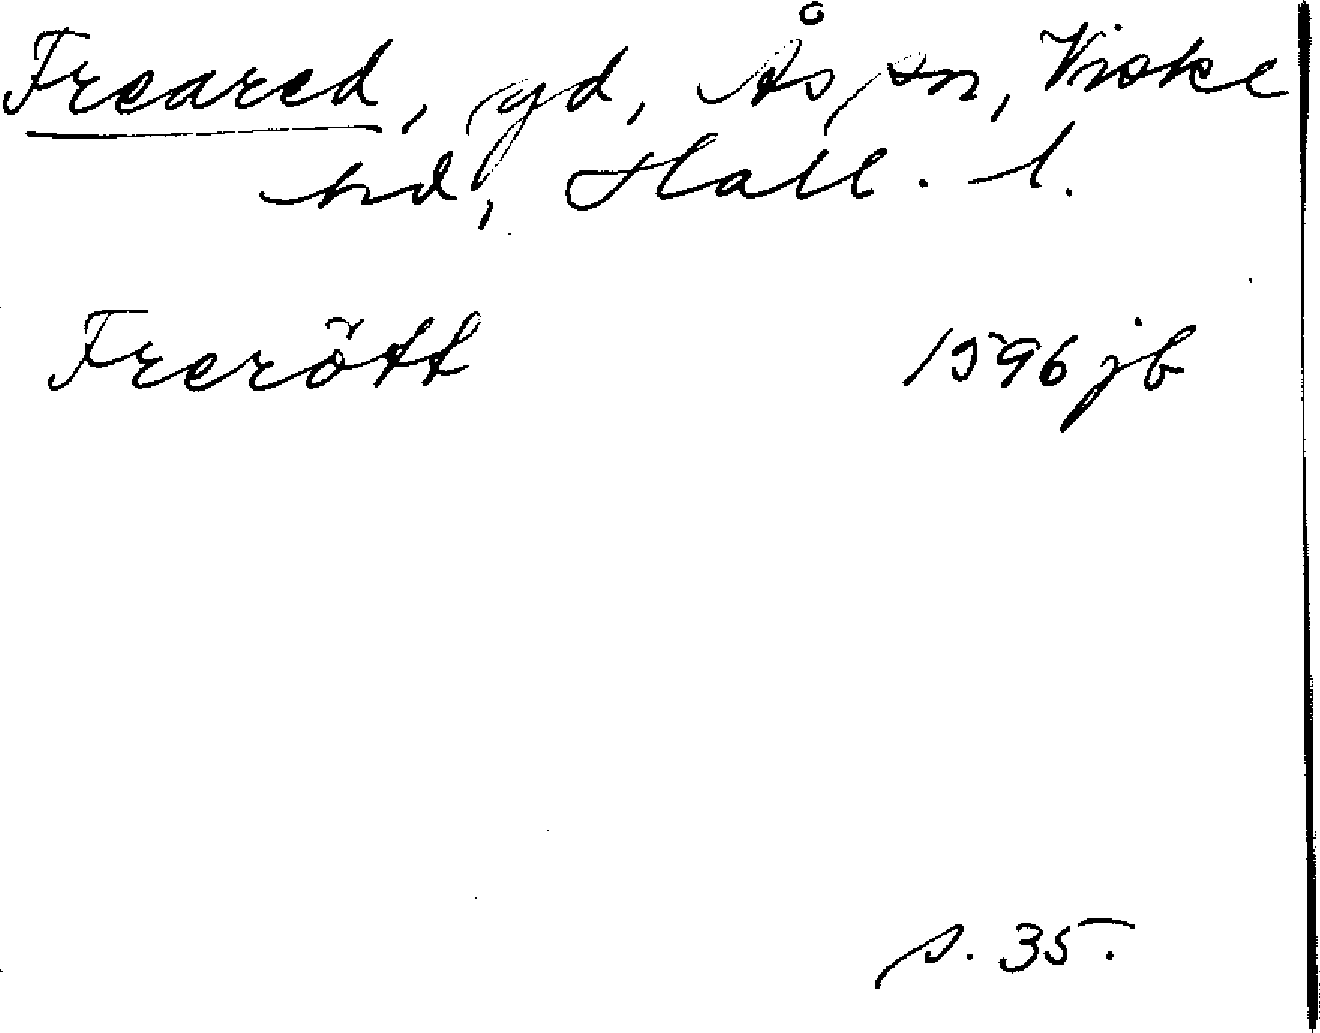 Freared, gd, Ås sn, Viske
hd, Hall. l.
Frerött 1596 jb
s. 35.